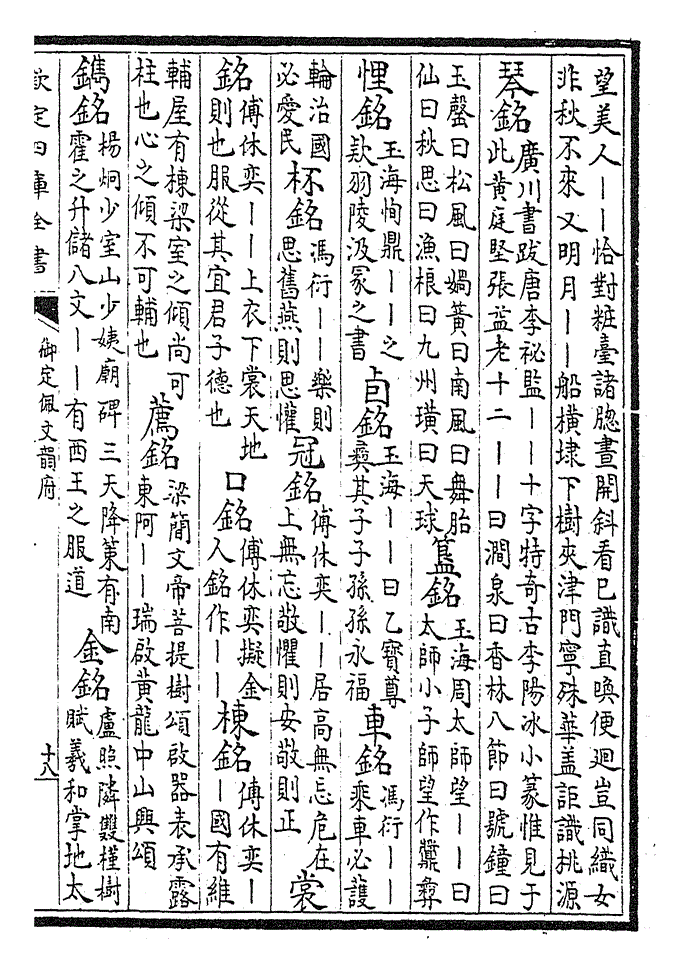 望美人丨丨恰對粧臺諸牕晝開斜看已識直喚便迴豈同織女
非秋不來又明月丨丨船橫埭下樹夾津門寧殊華葢詎識桃源
琴銘 廣川書跋唐李祕監丨丨十字特奇古李陽冰小篆惟見于
此黄庭堅張益老十二丨丨曰澗泉曰香林八節曰號鐘曰
玉磬曰松風曰媧簧曰南風曰舞胎
仙曰秋思曰漁根曰九州璜曰天球
簋銘 玉海周太師望丨丨曰
太師小子師望作䵼彝
悝銘 玉海恂鼎丨丨之
款羽陵汲冢之書
卣銘 玉海丨丨曰乙寶尊
彝其子子孫孫永福
車銘 馮衍丨丨
乘車必護
輪治國
必愛民
杯銘 馮衍丨丨樂則
思舊燕則思懼
冠銘 傅休奕丨丨居高無忘危在
上無忘敬懼則安敬則正
裳
銘 傅休奕丨丨上衣下裳天地
則也服從其宜君子德也
口銘 傅休奕擬金
人銘作丨丨
棟銘 傅休奕丨
丨國有維
輔屋有棟梁室之傾尚可
柱也心之傾不可輔也
薦銘 梁簡文帝菩提樹頌啟器表承露
東阿丨丨瑞啟黄龍中山興頌
鐫銘 楊炯少室山少姨廟碑三天降策有南
霍之升儲八文丨丨有西王之服道
金銘 盧照隣雙槿樹
賦羲和掌地太
欽定四庫全書
御定佩文韻府
十八